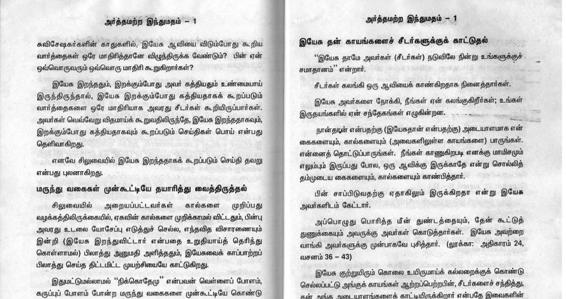 அர்த்தமற்ற இந்துமதம் – 1
சுவிசேஷகர்களின் காதுகளில், இயேசு ஆவியை விடும்போது கூறிய
வார்த்தைகள் ஒரே மாதிரித்தானே விழுந்திருக்க வேண்டும்? பின் ஏன்
ஒவ்வொருவரும் ஒவ்வொரு மாதிரி கூறுகிறார்கள்?
இயேசு இறந்ததும், இறக்கும்போது அவர் கத்தியதும் உண்மையாய்
இருந்திருந்தால், இயேசு இறக்கும்போது கத்தியதாகக் கூறப்படும்
வார்த்தைகளை ஒரே மாதிரியாக அவரது சீடர்கள் கூறியிருப்பார்கள்.
அவர்கள் வெவ்வேறு விதமாய்க் கூறுவதிலிருந்தே, இயேசு இறந்ததாகவும்,
இறக்கும்போது கத்தியதாகவும் கூறப்படும் செய்திகள் பொய் என்பது
தெளிவாகிறது.
எனவே சிலுவையில் இயேசு இறந்ததாகக் கூறப்படும் செய்தி தவறு
என்பது புலனாகிறது.
மருந்து வகைகள் முன்கூட்டியே தயாரித்து வைத்திருத்தல்
சிலுவையில் அறையப்பட்டவர்கள் கால்களை முறிப்பது
வழக்கத்திலிருக்கையில், ஏசுவின் கால்களை முறிக்காமல் விட்டதும், பின்பு
அவரது உடலை யோசேப்பு எடுத்துச் செல்ல, எந்தவித விசாரணையும்
இன்றி (இயேசு இறந்துவிட்டார் என்பதை உறுதியாய்த் தெரிந்து
கொள்ளாமல்) பிலாத்து அனுமதி அளித்ததும், இயேசுவைக் காப்பாற்றப்
பிலாத்து செய்த திட்டமிட்ட முயற்சியையே காட்டுகிறது.
இதுமட்டுமல்லாமல் "நிக்கொதேமு" என்பவன் வெள்ளைப் போளம்,
கரும்புப் போளம் போன்ற மருந்து வகைகளை முன்கூட்டியே கொண்டு
அர்த்தமற்ற இந்துமதம் – 1
இயேசு தன் காயங்களைச் சீடர்களுக்குக் காட்டுதல்
"இயேசு தாமே அவர்கள் (சீடர்கள்) நடுவிலே நின்று உங்களுக்குச்
சமாதானம்" என்றார்.
சீடர்கள் கலங்கி ஒரு ஆவியைக் காண்கிறதாக நினைத்தார்கள்.
இயேசு அவர்களை நோக்கி, நீங்கள் ஏன் கலங்குகிறீர்கள்; உங்கள்
இருதயங்களில் ஏன் சந்தேகங்கள் எழுகின்றன.
நான்தான் என்பதற்கு (இயேசுதான் என்பதற்கு) அடையாளமாக என்
கைகளையும், கால்களையும் (அவைகளிலுள்ள காயங்களை) பாருங்கள்.
என்னைத் தொட்டுப்பாருங்கள். நீங்கள் காணுகிறபடி எனக்கு மாமிசமும்
எலும்பும் இருப்பது போல, ஒரு ஆவிக்கு இருக்காதே என்று சொல்லித்
தம்முடைய கைகளையும், கால்களையும் காண்பித்தார்.
பின் சாப்பிடுவதற்கு ஏதாகிலும் இருக்கிறதா என்று இயேசு
அவர்களிடம் கேட்டார்.
அப்பொழுது பொரித்த மீன் துண்டத்தையும், தேன் கூட்டுத்
துணுக்கையும் அவருக்கு அவர்கள் கொடுத்தார்கள். இயேசு அவற்றை
வாங்கி அவர்களுக்கு முன்பாகவே புசித்தார். (லூக்கா: அதிகாரம் 24,
வசனம் 36 – 43)
இயேசு குற்றுயிரும் கொலை உயிருமாய்க் கல்லறைக்குக் கொண்டு
செல்லப்பட்டு அங்குக் காயங்கள் ஆற்றப்பெற்றபின், சீடர்களைச் சந்தித்து,